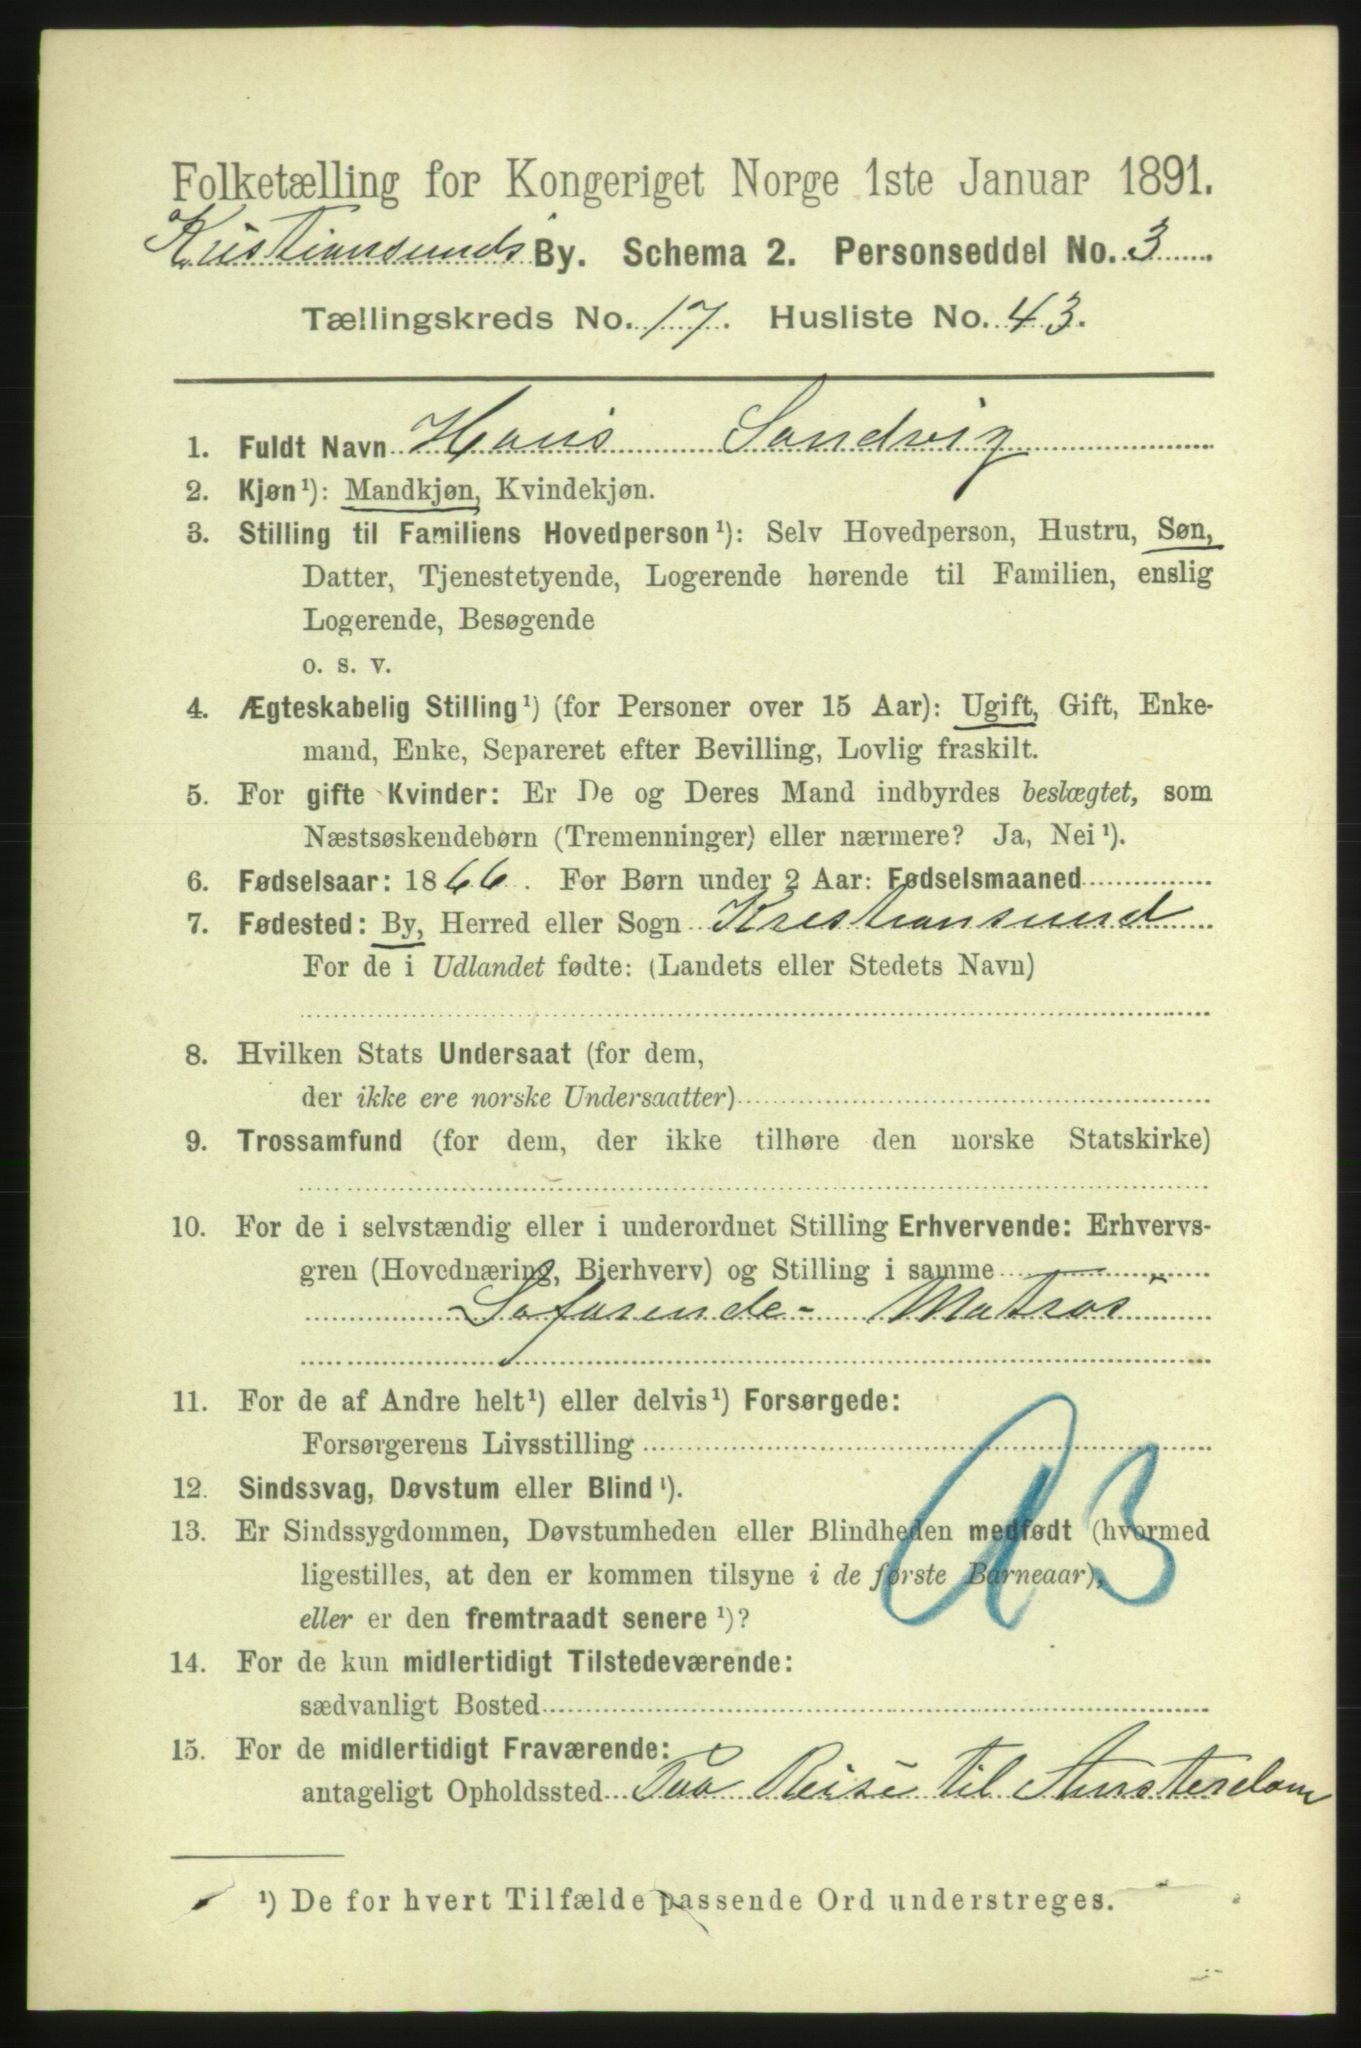 Folketælling for Kongeriget Norge 1ste Januar 1891.
Kristiansunds By. Schema 2. Personseddel No. 3
Tællingskreds No. 17. Husliste No. 43.
1. Fuldt Navn Hans Sandvig
2. Kjøn¹): Mandkjøn, Kvindekjøn.
3. Stilling til Familiens Hovedperson¹): Selv Hovedperson, Hustru, Søn,
Datter, Tjenestetyende, Logerende hørende til Familien, enslig
Logerende, Besøgende
o. s. v.
4. Ægteskabelig Stilling¹) (for Personer over 15 Aar): Ugift, Gift, Enke-
mand, Enke, Separeret efter Bevilling, Lovlig fraskilt.
5. For gifte Kvinder: Er De og Deres Mand indbyrdes beslægtet, som
Næstsøskendebørn (Tremenninger) eller nærmere? Ja, Nei¹).
6. Fødselsaar: 1866. For Børn under 2 Aar: Fødselsmaaned
7. Fødested: By, Herred eller Sogn Kristiansund
For de i Udlandet fødte: (Landets eller Stedets Navn)
8. Hvilken Stats Undersaat (for dem,
der ikke ere norske Undersaatter)
9. Trossamfund (for dem, der ikke tilhøre den norske Statskirke)
10. For de i selvstændig eller i underordnet Stilling Erhvervende: Erhvervs-
gren (Hovednæring, Bierhverv) og Stilling i samme
Søfarende - Matros
11. For de af Andre helt¹) eller delvis¹) Forsørgede:
Forsørgerens Livsstilling
12. Sindssvag, Døvstum eller Blind¹).
13. Er Sindssygdommen, Døvstumheden eller Blindheden medfødt (hvormed
ligestilles, at den er kommen tilsyne i de første Barneaar),
eller er den fremtraadt senere¹)?
14. For de kun midlertidigt Tilstedeværende:
sædvanligt Bosted
15. For de midlertidigt Fraværende:
antageligt Opholdssted Paa Reise til Amsterdam
¹) De for hvert Tilfælde passende Ord understreges.